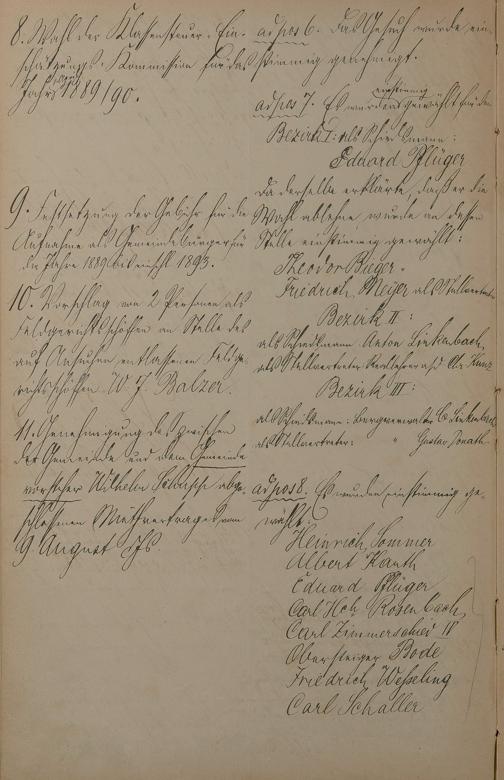 8. Wahl der Klassensteuer-Ein-
schätzungs-Kommission für das
Jahr 1889/90.
9. Festsetzung der Gebühr für die
Aufnahme als Gemeindebürger für
die Jahre 1889 bis einschl. 1893.
10. Vorschlag von 2 Personen als
Feldgerichtsschöffen an Stelle des
auf Ansuchen entlassenen Feldge-
richtsschöffen W. J. Balzer.
11. Genehmigung des zwischen
der Gemeinde und dem Gemeinde
vorsteher Wilhelm abge-
schlossenen Mietvertrages vom
9. August d. Js.
ad pos 6. Das Gesuch wurde ein-
stimmig genehmigt.
ad pos 7. Es wurden einstimmig gewählt für den
Bezirk I: als Schiedsmann:
Eduard Pflüger
Da derselbe erklärte, daß er die
Wahl ablehne wurde an dessen
Stelle einstimmig gewählt:
Theodor Bieger
Friedrich Meijer als Stellvertreter
Bezirk II:
als Schiedsmann Anton Linkenbach,
als Stellvertreter Kunz
Bezirk III:
als Schiedsmann: Bergverwalter C. Linkenbach
als Stellvertreter: " Gustav
ad pos 8. Es wurden einstimmig ge-
wählt:
Heinrich Sommer
Albert Kauth
Eduard Pflüger
Carl Hch. Rosenbach
Carl Zimmerschied IV
Obersteiger Bode
Friedrich Wesseling
Carl Schaller